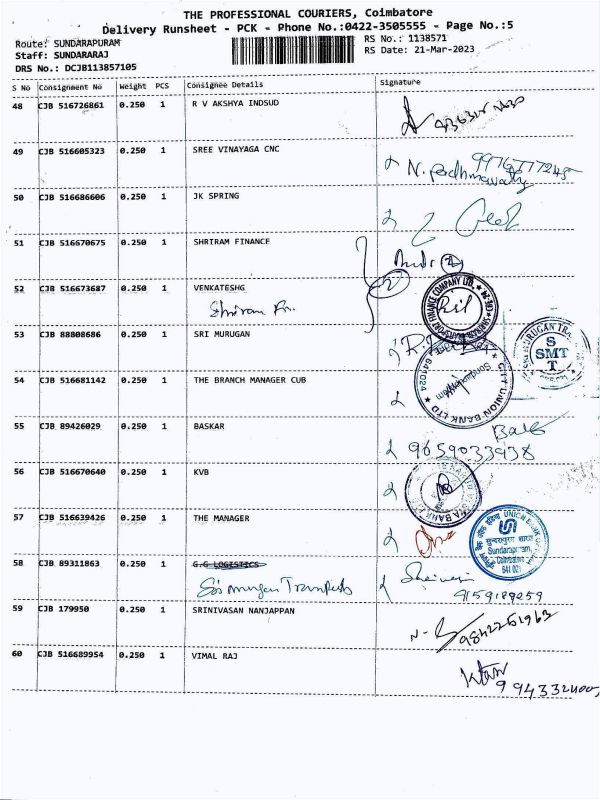 THE PROFESSIONAL COURIERS, Coimbatore
Delivery Runsheet - PCK - Phone No.:0422-3505555 - Page No.:5
Route: SUNDARAPURAM
RS No.: 1138571
Staff: SUNDARARAJ
RS Date: 21-Mar-2023
DRS No.: DCJB113857105
S No Consignment No Weight PCS Consignee Details Signature
48 CJB 516726861 0.250 1 R V AKSHYA INDSUD
49 CJB 516605323 0.250 1 SREE VINAYAGA CNC
N. Padhmavathy
50 CJB 516686606 0.250 1 JK SPRING
51 CJB 516670675 0.250 1 SHRIRAM FINANCE
52 CJB 516673687 0.250 1 VENKATESHG
Shriram Fn.
53 CJB 88808686 0.250 1 SRI MURUGAN
S
SMT
T
54 CJB 516681142 0.250 1 THE BRANCH MANAGER CUB
CITY UNION BANK LTD
641024
55 CJB 89426029 0.250 1 BASKAR
9659033938
56 CJB 516670640 0.250 1 KVB
57 CJB 516639426 0.250 1 THE MANAGER
UNION BANK
Sundarapuram,
Coimbatore
641 021
58 CJB 89311863 0.250 1 G.G LOGISTICS
Sri murugan Transports
9159189059
59 CJB 179950 0.250 1 SRINIVASAN NANJAPPAN
9842251963
60 CJB 516689954 0.250 1 VIMAL RAJ